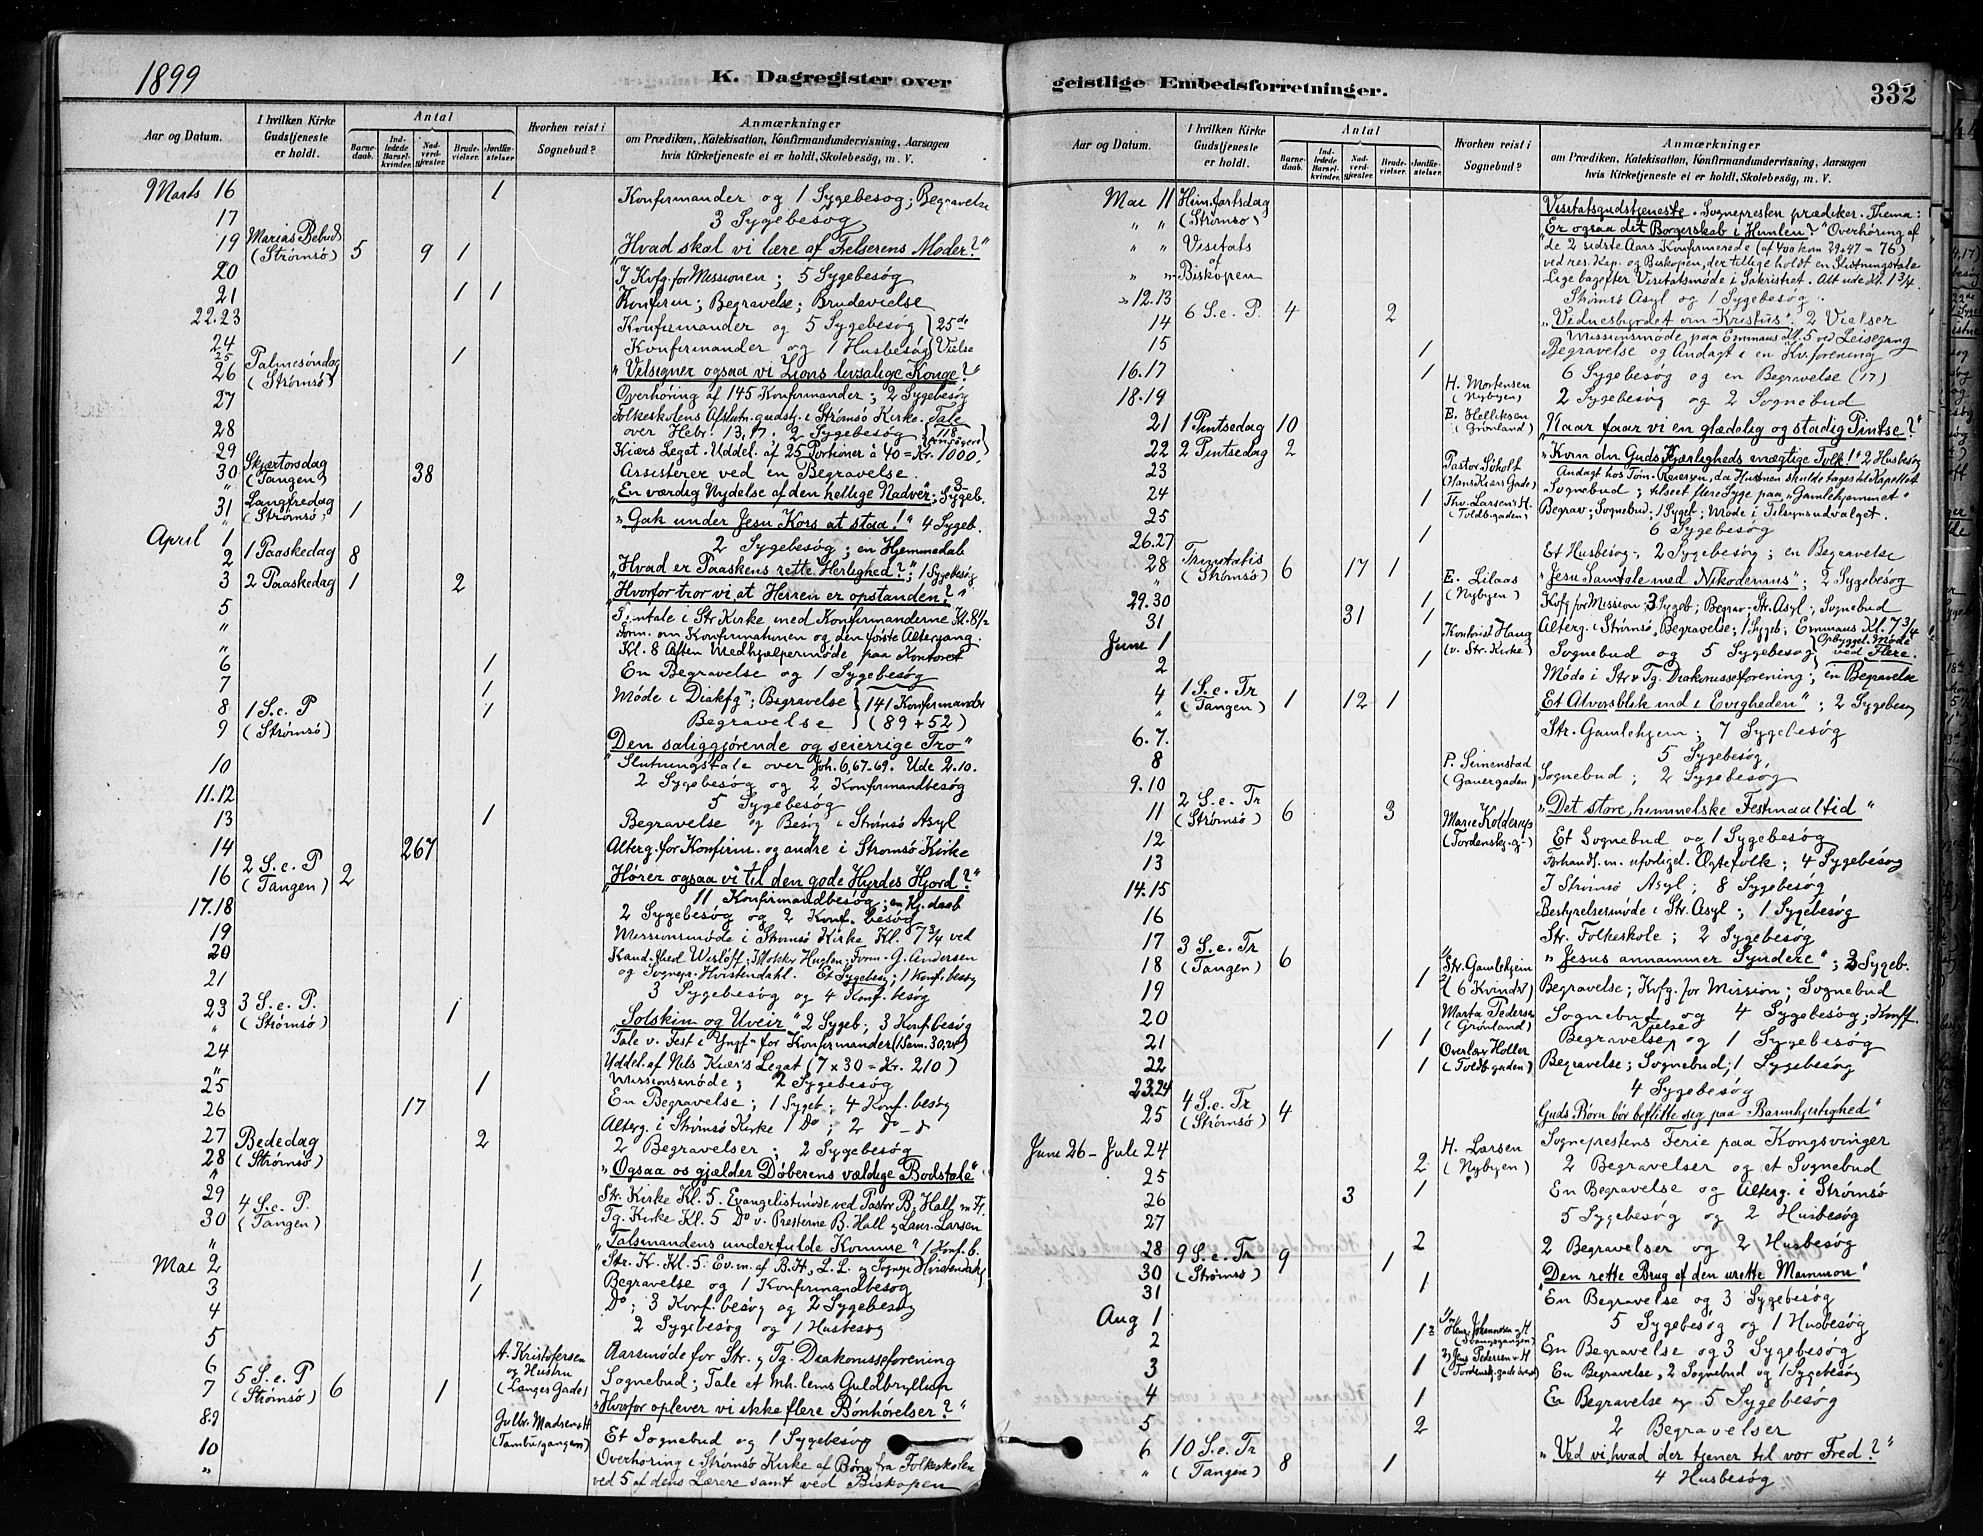 1899
K. Dagregister over
Aar og Datum.
I hvilken Kirke Gudstjeneste er holdt.
Antal
Barnedaab.
Indledede Barselkvinder.
Nadverdgjester.
Brudevielser.
Jordfæstelser.
Hvorhen reist i Sognebud?
Anmærkninger
om Prædiken, Katekisation, Konfirmandundervisning, Aarsagen
hvis Kirketjeneste ei er holdt, Skolebesøg, m. V.
Marts 16 1 Konfirmander og 1 Sygebesøg; Begravelse
17 3 Sygebesøg
19 Marias Bebud. (Strømsø) 5 9 1 "Hvad skal vi lære af Frelserens Moder?"
20 I Kvfg. for Missionen; 5 Sygebesøg
21 1 1 Konfirm; Begravelse; Brudevielse
22.23 Konfirmander og 5 Sygebesøg
24 Konfirmander og 1 Husbesøg
25 1 25de Vielse
26 Palmesøndag (Strømsø) "Velsigner ogsaa vi Zions livsalige Konge?"
27 Overhøring af 145 Konfirmander; 2 Sygebesøg
Folkeskolens Afslutn.gudstj. i Strømsø Kirke. Tale
28 over Hebr. 13,17, 2 Sygebesøg
29 Kiærs Legat. Uddel. af 25 Portioner à 40 = Kr. 1000. (118 Ansøgere)
30 Skjærtorsdag (Tangen) 38 Assisterer ved en Begravelse.
" "En værdig Nydelse af den hellige Nadver"; 3 Sygeb.
31 Langfredag (Strømsø) 1 "Gak under Jesu Kors at staa!" 4 Sygeb.
April 1 2 Sygebesøg; en Hjemmedaab
2 1 Paaskedag 8 "Hvad er Paaskens rette Herlighed?"; 1 Sygebesøg
3 2 Paaskedag 1 2 "Hvorfor tror vi at Herren er opstanden?"
5 Samtale i Str. Kirke med Konfirmanderne Kl. 8 1/2
" Form. om Konfirmationen og den første Altergang.
" Kl. 8 Aften Medhjælpermøde paa Kontoret
6 1 En Begravelse og 1 Sygebesøg
7 1 Møde i Diakfg"; Begravelse
8 1 S. e. P 1 Begravelse
9 (Strømsø) 141 Konfirmander (89 + 52)
"Den saliggjørende og seierrige Tro"
10 Slutningstale over Joh. 6,67-69. Ude 2.10.
2 Sygebesøg og 2 Konfirmandbesøg
11.12 5 Sygebesøg
13 1 Begravelse og Besøg i Strømsø Asyl
14 267 Alterg. for Konfirm. og andre i Strømsø Kirke
16 2 S. e. P (Tangen) 2 "Hører ogsaa vi til den gode Hyrdes Hjord?"
11 Konfirmandbesøg; en Hj. daab
17.18 2 Sygebesøg og 2 Konf. besøg
19 Missionsmøde i Strømsø Kirke Kl. 7 3/4 ved
20
og Sognepr. Hvistendahl. Et Sygebesøg; 1 Konf. besøg
21 3 Sygebesøg og 4 Konf. besøg
23 3 S. e. P. (Strømsø) 1 "Solskin og Uveir" 2 Sygeb; 3 Konf. besøg
" Tale v. Fest i Ynff" for Konfirmander (1 Sam. 30,24)
24 Uddel. af Nils Kiær's Legat (7 x 30 = Kr. 210)
" Missionsmøde; 2 Sygebesøg
25 1 En Begravelse; 1 Sygeb; 4 Konf. besøg
26 17 Alterg. i Strømsø Kirke 1 Do; 2 do
27 2 2 Begravelser; 2 Sygebesøg
28 Bededag (Strømsø) "Ogsaa os gjælder Døberens vældige Bodstale"
" Str. Kirke Kl. 5. Evangelistmøde ved Pastor B. Hall m. Fr.
29 Tg. Kirke Kl. 5 Do v. Presterne B. Hall og Laur. Larsen
30 4 S. e. P. (Tangen) "Talsmandens underfulde Komme" 1 Konf. b.
" Str. K. Kl. 5. Ev. m. af B. H., L. L. og Sognepr. Hvistendahl
Mai 2 1 Begravelse og 1 Konfirmandbesøg
3 1 Do; 3 Konf. besøg og 2 Sygebesøg
4 2 Sygebesøg og 1 Husbesøg
5 Aarsmøde for Str. og Tg. Diakonisseforening
6 A. Kristofersen og Hustru (Langes Gade) Sognebud; Tale et Mh. lems Guldbryllup
7 5 S. e. P (Strømsø) 6 1 "Hvorfor oplever vi ikke flere Bønhørelser?"
8.9 Gulbr. Madsen & H (Tamburgangen) Et Sognebud og 1 Sygebesøg
10 Overhøring i Strømsø Kirke af Børn fra Folkeskolen
" ved 5 af dens Lærere samt ved Biskopen
geistlige Embedsforretninger.
332
Aar og Datum.
I hvilken Kirke Gudstjeneste er holdt.
Antal
Barnedaab.
Indledede Barselkvinder.
Nadverdgjester.
Brudevielser.
Jordfæstelser.
Hvorhen reist i Sognebud?
Anmærkninger
om Prædiken, Katekisation, Konfirmandundervisning, Aarsagen
hvis Kirketjeneste ei er holdt, Skolebesøg, m. V.
Mai 11 Him.fartsdag (Strømsø) Visitatsgudstjeneste. Sognepresten prædiker. Thema:
" " "Er ogsaa det Borgerskab i Himlen?" Overhøring af
" " Visitats de 2 sidste Aars Konfirmerede (af 400 kom 29+47 = 76)
af ved res. Kap. og Biskopen, der tillige holdt en Slutningstale
" " Biskopen Lige bagefter Visitatsmøde i Sakristiet. Alt ude Kl. 1 3/4.
" 12.13 Strømsø Asyl og 1 Sygebesøg.
14 6 S. e. P. 4 2 "Vidnesbyrdet om Kristus" 2 Vielser
Missionsmøde paa Emmaus Kl. 5 ved Leisegang
15 1 Begravelse og Andagt i en Kv. forening
16.17 1 6 Sygebesøg og en Begravelse (17)
18.19 H. Mortensen (Nybyen) 2 Sygebesøg og 2 Sognebud
E. Helliksen (Grønland)
21 1 Pintsedag 10 "Naar faar vi en glædelig og stadig Pintse?"
22 2 Pintsedag 2 "Kom du Guds Kjærligheds mægtige Tolk!" 2 Husbesøg
23 Andagt hos Tøm. Reiersen, da Hustruen skulde tages til Kapellet
24 Pastor Siholt (Hans Kiærs Gade) Sognebud; tilseet flere Syge paa "Gamlehjemmet"
25 1 Thv. Larsen's H. (Toldb.gaden) Begrav; Sognebud; 1 Sygeb; Møde i Tilsynsudvalget.
26.27 1 6 Sygebesøg
Et Husbesøg, 2 Sygebesøg; en Begravelse
28 Trinitatis (Strømsø) 6 17 1 "Jesu Samtale med Nikodemus"; 2 Sygebesøg
29.30 1 E. Lilaas (Nybyen) Kvfg. for Mission; 3 Sygeb; Begrav. Str. Asyl, Sognebud
31 31 1 Alterg. i Strømsø, Begravelse; 1 Sygeb; Emmaus Kl. 7 3/4 Opbyggel. Møde ved Flere.
June 1 Kontorist Haug (v. Str. Kirke) Sognebud og 5 Sygebesøg
2 1 Møde i Str & Tg. Diakonisseforening; en Begravelse
4 1 S. e. Tr (Tangen) 1 12 1 "Et Alvorsblik ind i Evigheden"; 2 Sygebesøg
6.7. Str. Gamlehjem; 7 Sygebesøg
8 5 Sygebesøg,
9.10 P. Seinenstad (Gauergaden) Sognebud; 2 Sygebesøg
11 2 S. e. Tr (Strømsø) 6 3 "Det store, himmelske Festmaaltid"
12 Marie Kolderup (Tordenskj. g.) Et Sognebud og 1 Sygebesøg
13 Forhandl. m. uforligel. Ægtefolk; 4 Sygebesøg
14.15 I Strømsø Asyl; 8 Sygebesøg
16 Bestyrelsesmøde i Str. Asyl; 1 Sygebesøg
17 Str. Folkeskole; 2 Sygebesøg
18 3 S. e. Tr (Tangen) 6 "Jesus annammer Syndere"; 3 Sygeb.
19 1 Str. Gamlehjem (6 Kvinder) Begravelse; Kvfg. for Mission; Sognebud
20 Marta Pedersen (Grønland) Sognebud og 4 Sygebesøg; Konff.
21 1 1 Begravelse, Vielse og 1 Sygebesøg
22 1 Overlær Holler (Toldb.gaden) Begravelse; Sognebud; 1 Sygebesøg
23.24 4 Sygebesøg
25 4 S. e. Tr (Strømsø) 4 "Guds Børn bør beflitte sig paa Barmhjertighed"
June 26 - Juli 24 Sogneprestens Ferie paa Kongsvinger
25 2 H. Larsen (Nybyen) 2 Begravelser og et Sognebud
26 3 1 En Begravelse og Alterg. i Strømsø
27 5 Sygebesøg og 2 Husbesøg
28 2 2 Begravelser og 2 Husbesøg
30 9 S. e. Tr (Strømsø) 9 1 "Den rette Brug af den urette Mammon"
31 1 En Begravelse og 3 Sygebesøg
Aug 1 5 Sygebesøg og 1 Husbesøg
2 1 Henr. Johannesen & H En Begravelse og 3 Sygebesøg
3 1 Jens Pedersen & H (Tordenskj. gade øvre) En Begravelse, 2 Sognebud og 1 Sygebesøg
4 1 En Begravelse og 5 Sygebesøg
5 2 2 Begravelser
6 10 S. e. Tr (Tangen) 8 1 "Ved vi hvad der tjener til vor Fred?"
" 4 Husbesøg